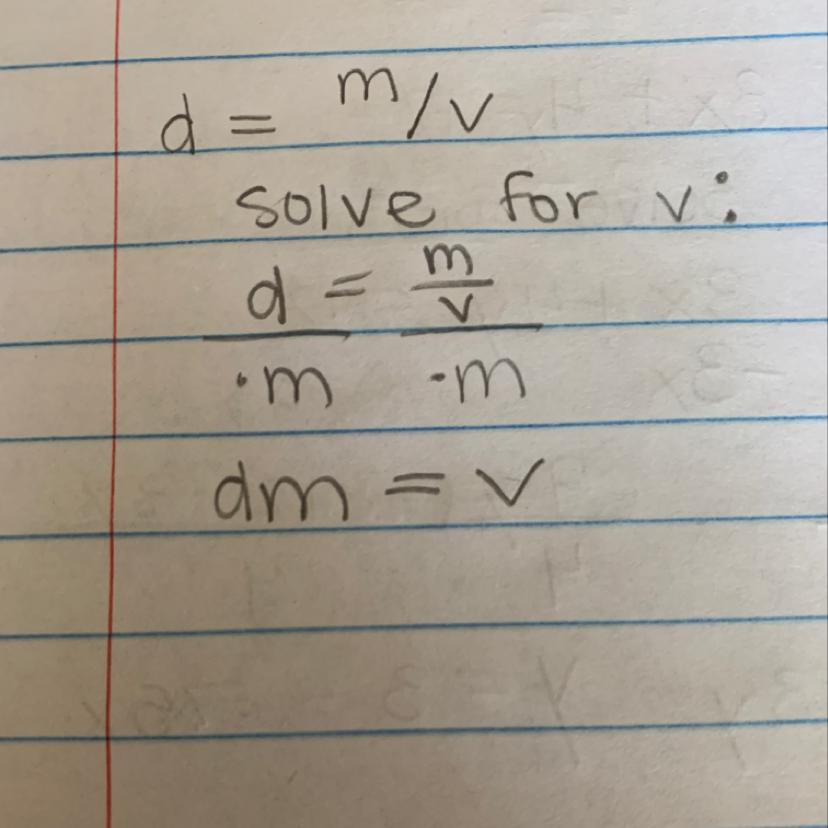 d = m/v
solve for v:
d = m/v
·m ·m
dm = v